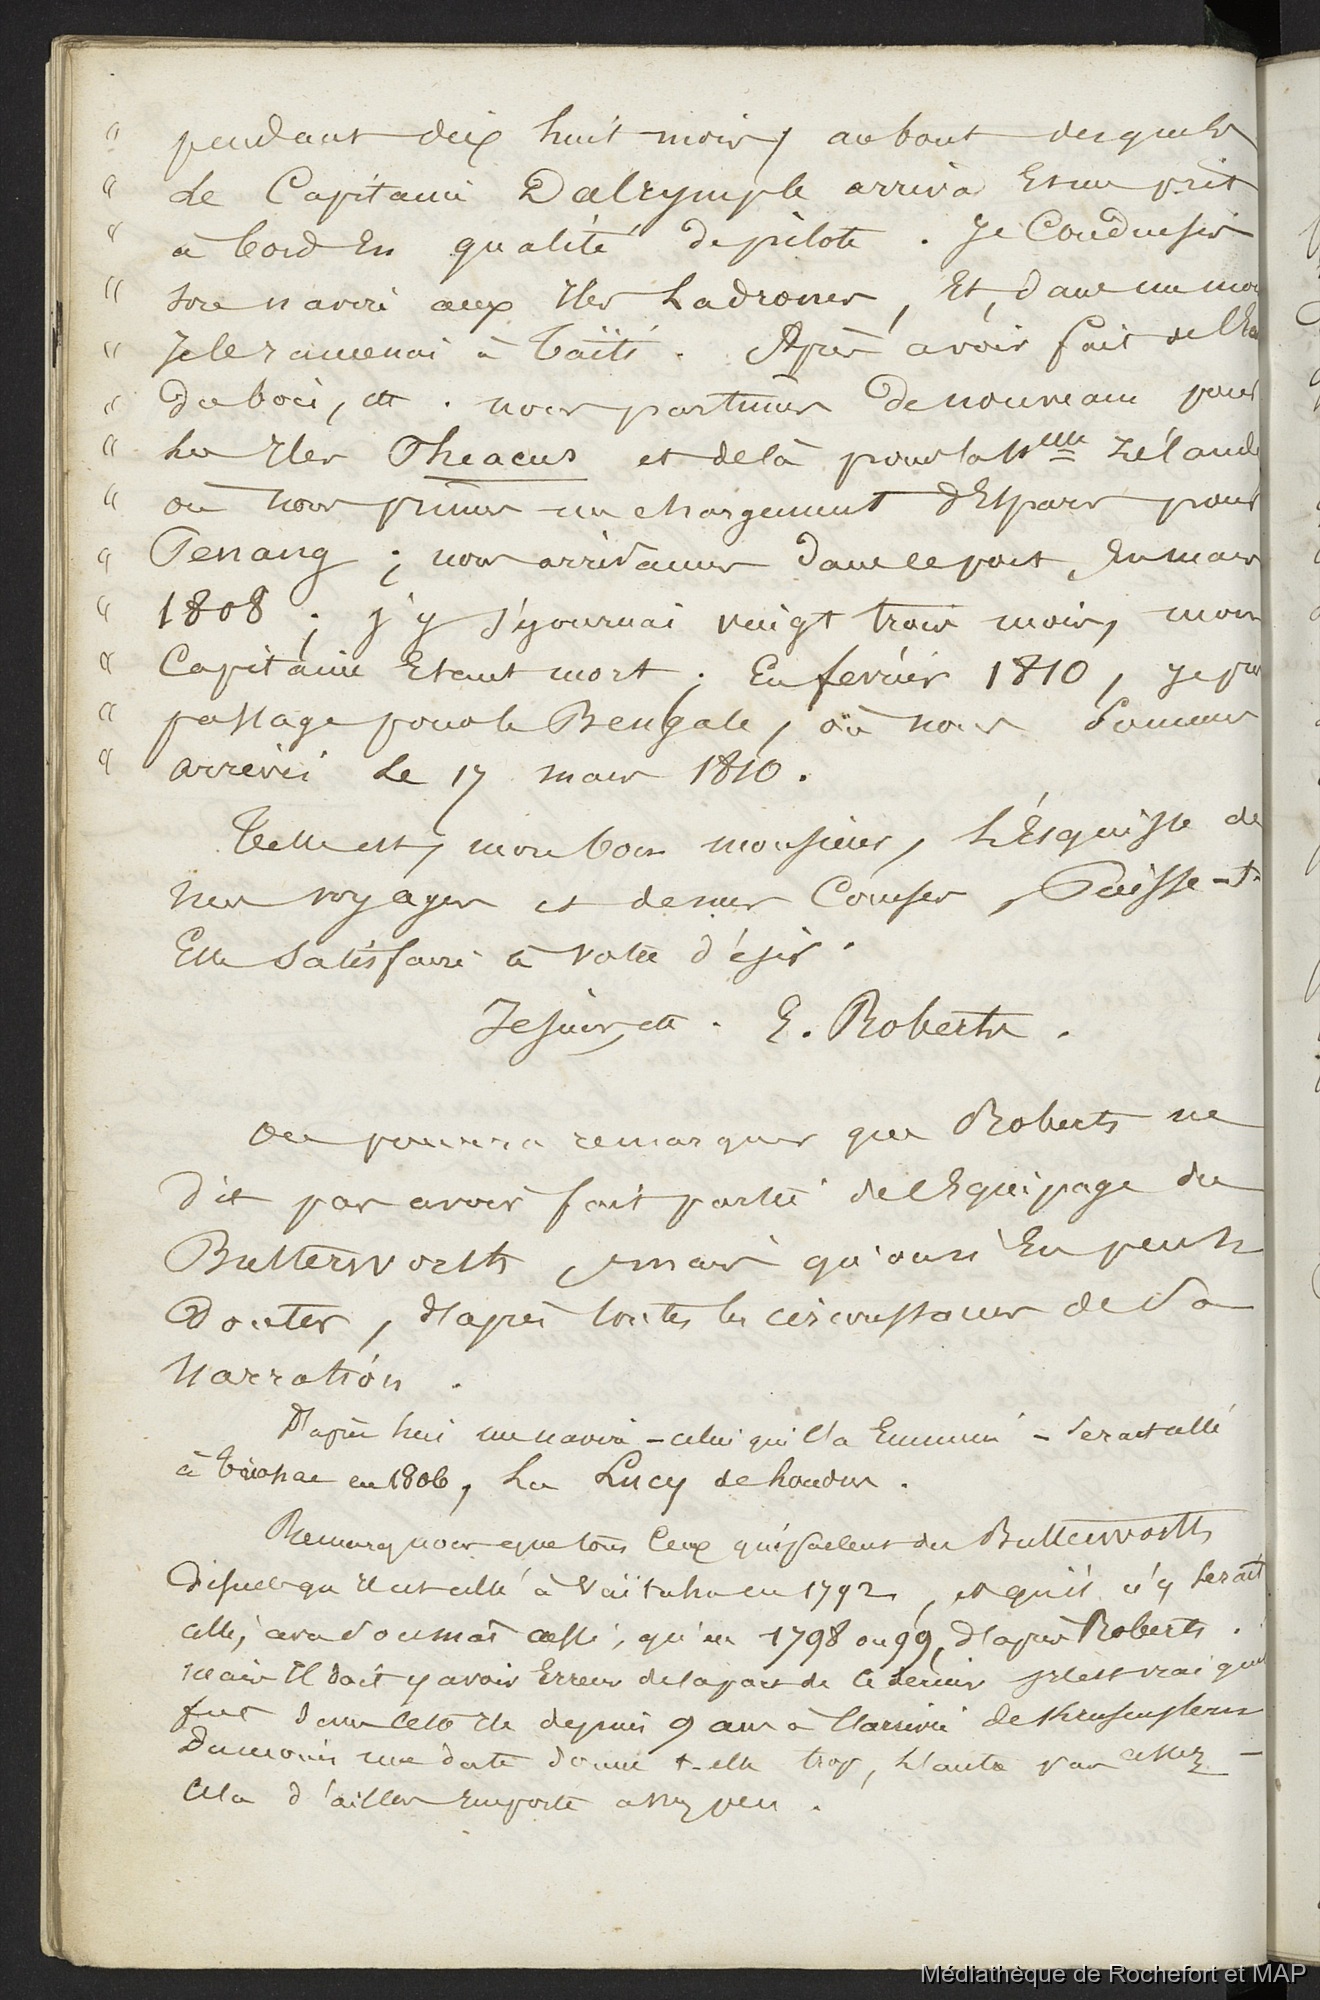 " pendant dix huit mois, au bout desquels
" le Capitaine Dalrymple arriva Et me prit
" à bord En qualité de pilote. Je Conduisis
" son navire aux Iles Ladrones, Et, dans un mois
" Je le ramenai à taïti. Après avoir fait de l'Eau
" du bois, etc. nous partimes de nouveau pour
" les Iles Theacus et delà pour la Nlle Zélande
" où nous primes un chargement d'Espars pour
" Penang; nous arrivames dans le port, En mars
" 1808; j'y séjournai vingt trois mois, mon
" Capitaine Etant mort; En fevrier 1810, je pris
" passage pour le Bengale, où nous sommes
" arrivés le 17 mars 1810.
Telle est, mon bon monsieur, L'Esquisse de
mes voyages et de mes Courses, Puisse-t-
Elle satisfaire à votre désir.
Je suis, etc. E. Roberts.
On pourra remarquer que Roberts ne
dit pas avoir fait partie de l'Equipage du
Butterworth, mais qu'on En peut
Douter, d'après toutes les circonstances de sa
Narration.
D'après lui un navire - celui qui l'a Emmené - serait allé
à en 1806, La Lucy de Londres.
Remarquons que tous Ceux qui parlent du Butterworth
disent qu'Il est allé à Vaïtahu en 1792, et qu'il n'y serait
allé, qu'en 1798 ou 99, d'après Roberts.
mais Il doit y avoir Erreur de la part de Ce dernier s'il est vrai qu'il
fut dans cette Ile depuis 9 ans à l'arrivée de Krusenstern
Du moins une date donne t-elle trop, L'autre pas assez -
Cela d'ailleurs Importe assez peu.
Médiathèque de Rochefort et MAP